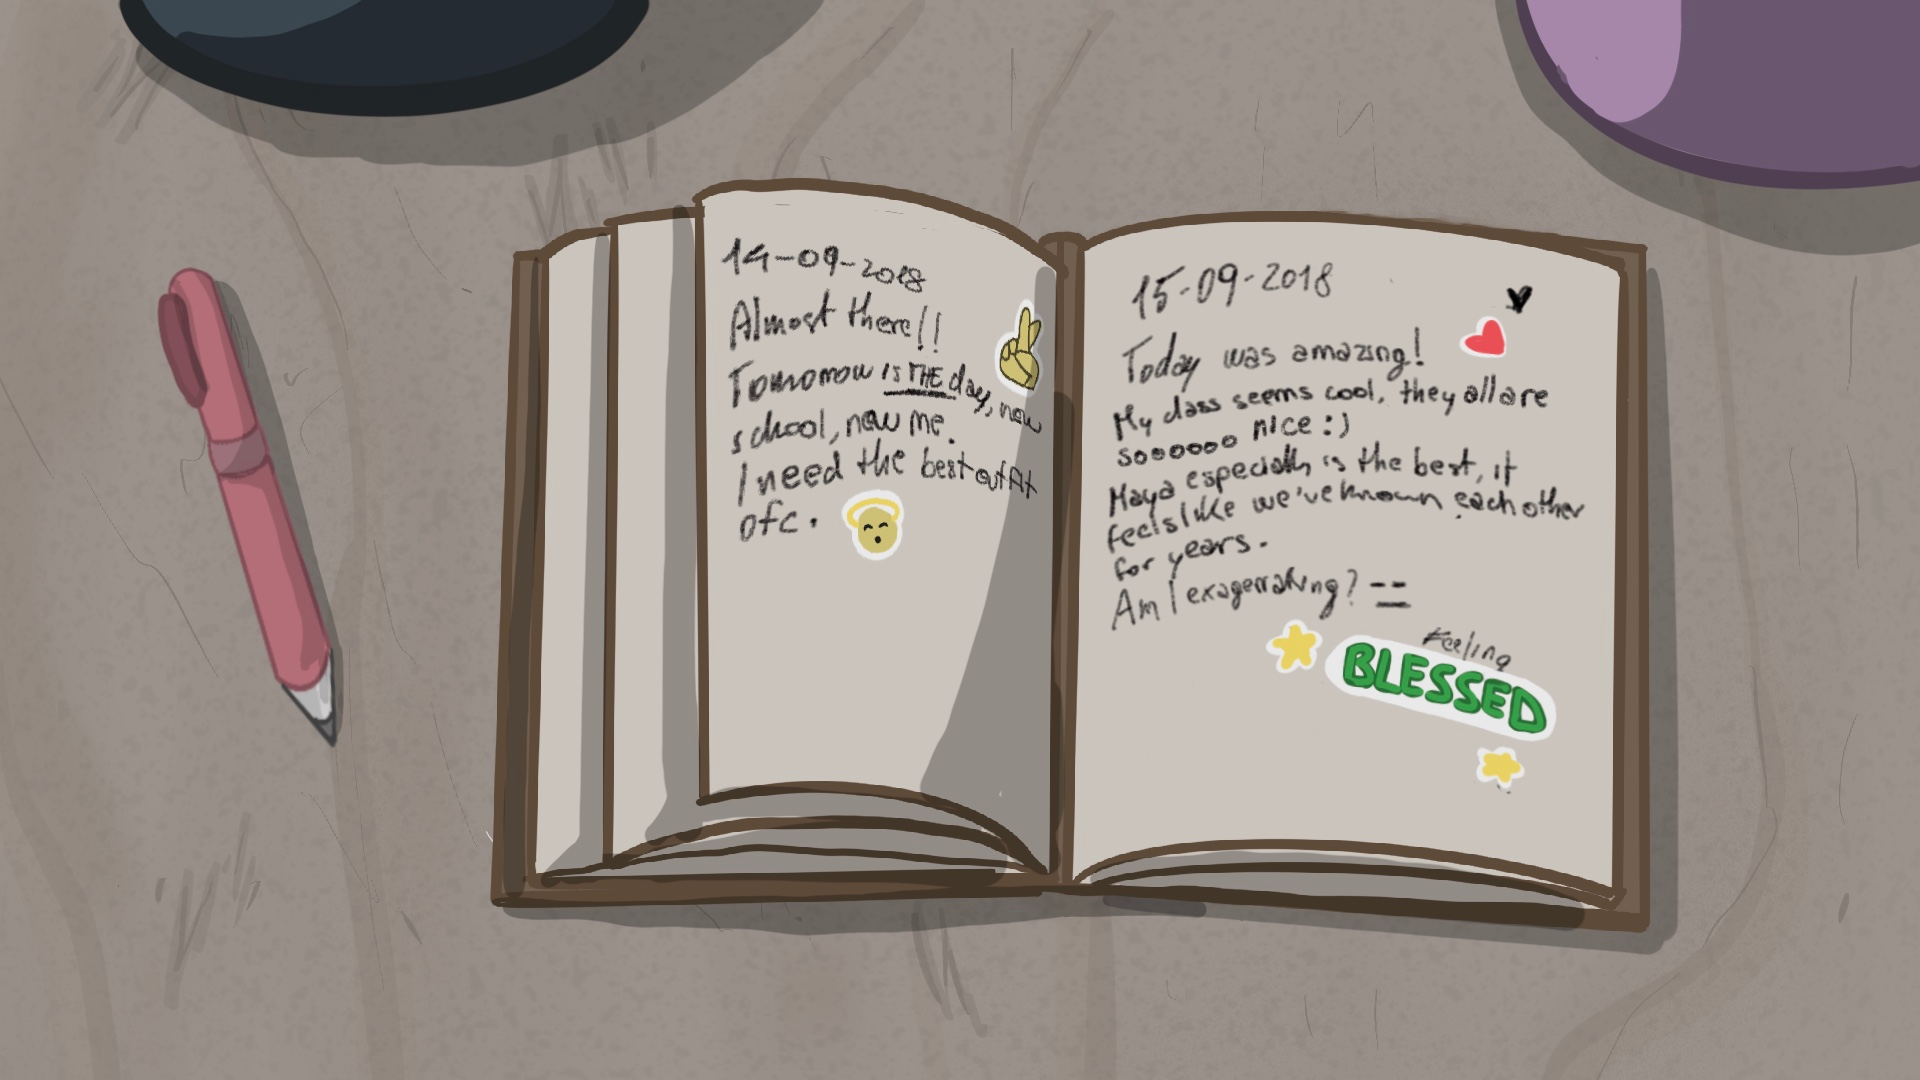 14-09-2018
Almost there!!
Tomorrow is THE day, new
school, new me.
I need the best outfit
ofc.
15-09-2018
Today was amazing!
My class seems cool, they all are
soooooo nice :)
Maya especially is the best, it
feels like we've known each other
for years.
Am I exagerrating?
Feeling
BLESSED